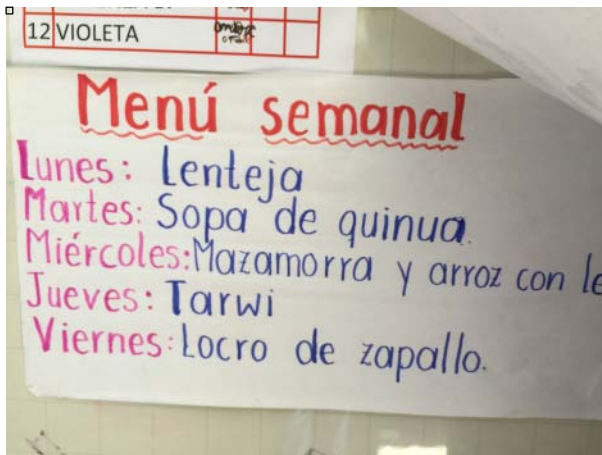 12 VIOLETA
Menú semanal
Lunes: Lenteja
Martes: Sopa de quinua.
Miércoles: Mazamorra y arroz con le
Jueves: Tarwi
Viernes: Locro de zapallo.